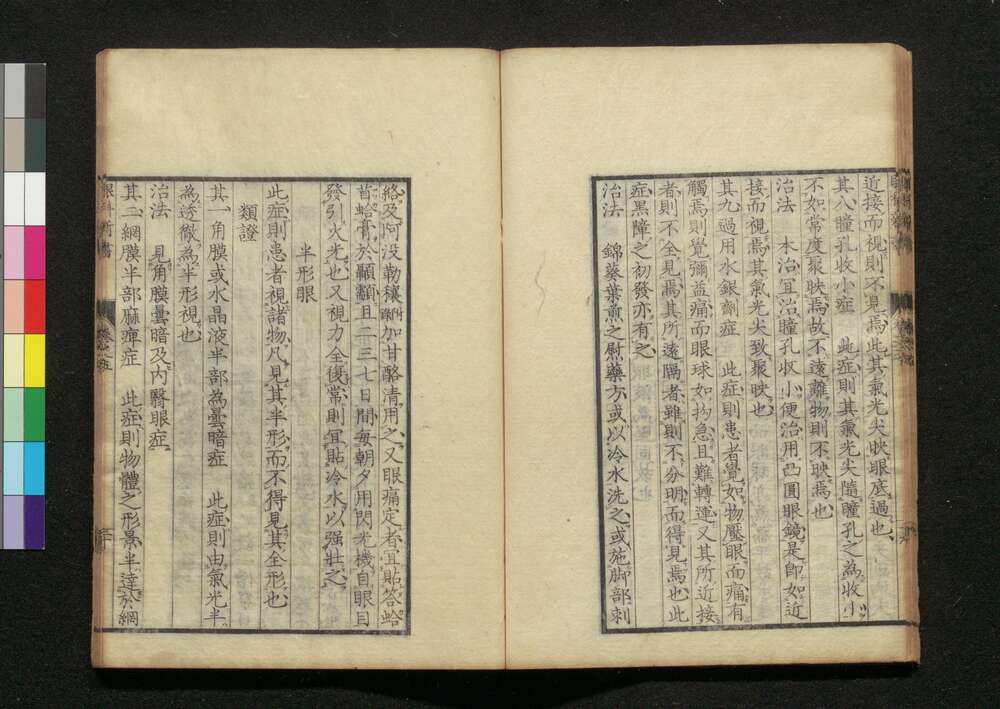 近接而視則不見焉此其氣光尖映眼底過也
其八瞳孔收小症　此症則其氣光尖隨瞳孔之為收小
不如常度聚映焉故不遠離物則不映焉也
治法　本治宜治瞳孔收小便治用凸圓眼鏡是卽如近
接而視焉其氣光尖致聚映也
其九過用水銀劑症　此症則患者覺如物壓眼而痛有
觸焉則覺彌益痛而眼球如拘急且難轉運又其所近接
者則不全見焉其所遠隔者雖則不分明而得見焉也此
症黑障之初發亦有之
治法　錦葵葉煎之慰藥方或以冷水洗之或施脚部刺
絡及阿没勒穰加甘酪清用之又眼痛定者宜貼答蛤
苜蛤膏於顳顬且二三七日間每朝夕用閃光機自眼目
發引火光也又視力全復常則宜貼冷水以强壯之
半形眼
此症則患者視諸物凡見其半形而不得見其全形也
類證
其一角膜或水晶液半部為曇暗症　此症則由氣光半
為透徹為半形視也
治法　見角膜曇暗及內翳眼症
其二網膜半部麻痺症　此症則物體之形景半達於網